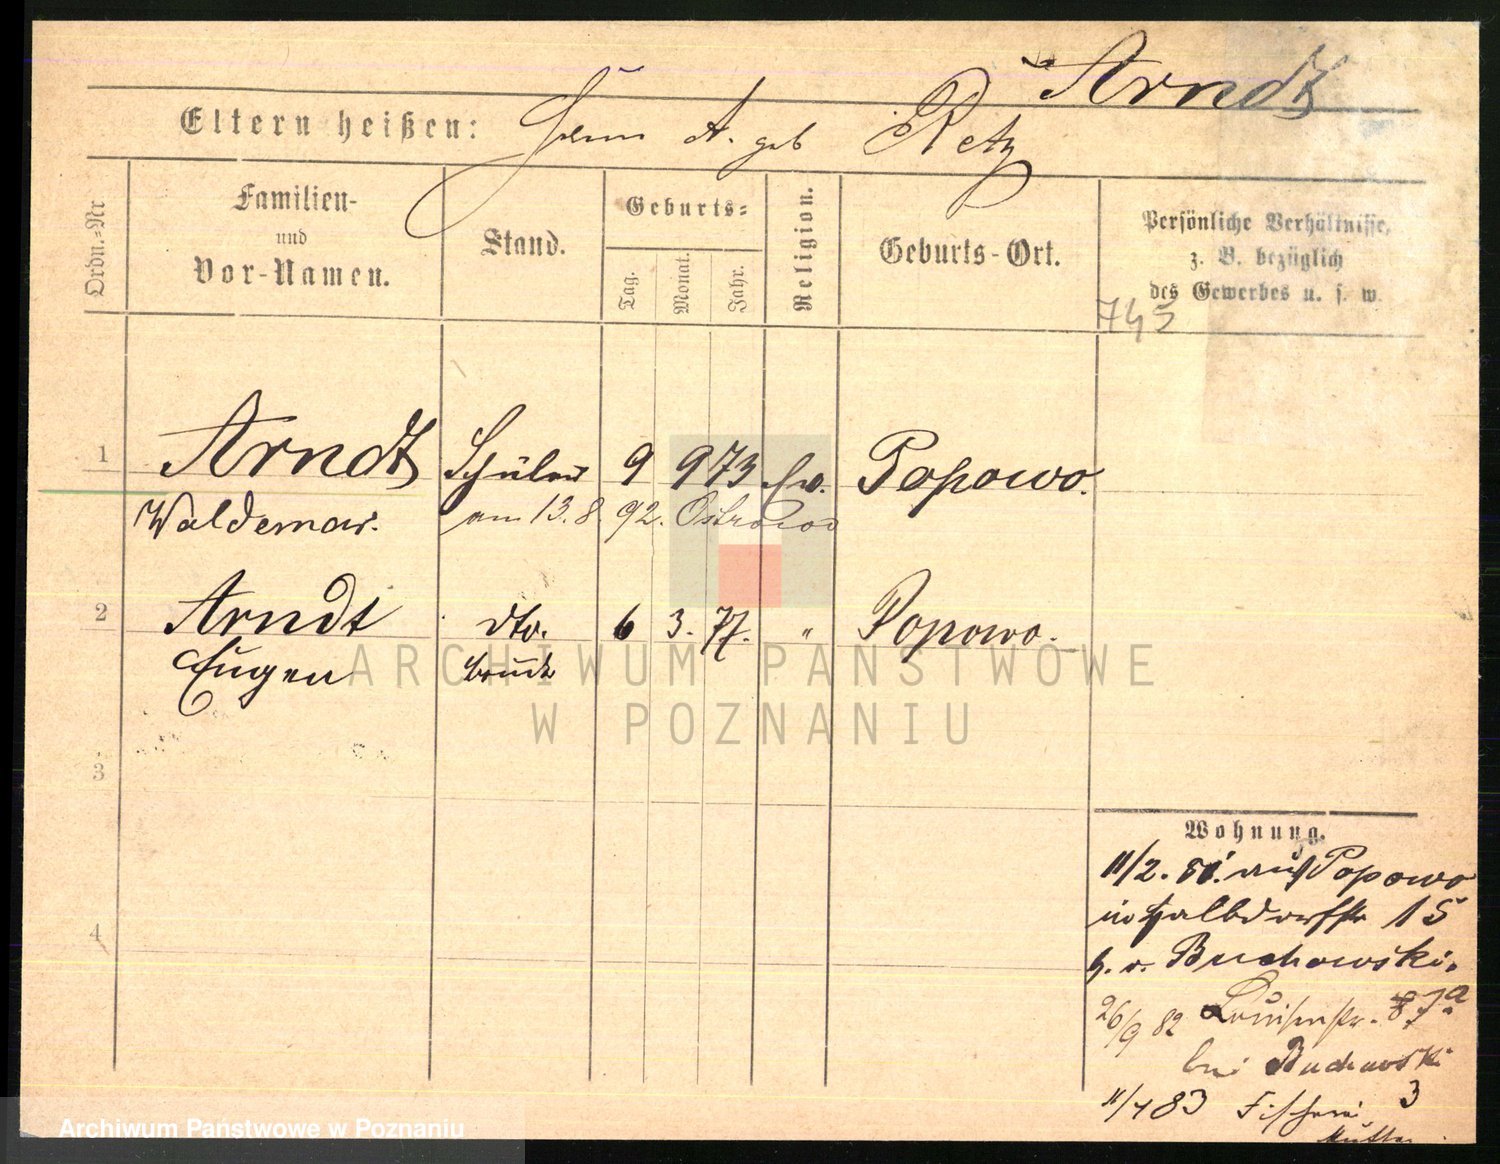 Arndt
Eltern heißen: A. geb Retz
Ordn.-Nr
Familien-
und
Vor-Namen.
Stand.
Geburts-
Tag.
Monat.
Jahr.
Religion.
Geburts-Ort.
Persönliche Verhältnisse,
z. B. bezüglich
des Gewerbes u. s. w.
745
1 Arndt Schüler 9 9 73 ev. Popowo.
Waldemar. am 13.8 92.
2 Arndt dto. 6 3. 77. " Popowo.
Eugen
ARCHIWUM PAŃSTWOWE
W POZNANIU
3
4
Wohnung.
11/2. auf Popowo
in Halbdorfstr 15
b. v. Buchowski.
26/9 82 Louisenstr. 7a
bei Buchowski
83 Fischerei 3
Mutter
Archiwum Państwowe w Poznaniu